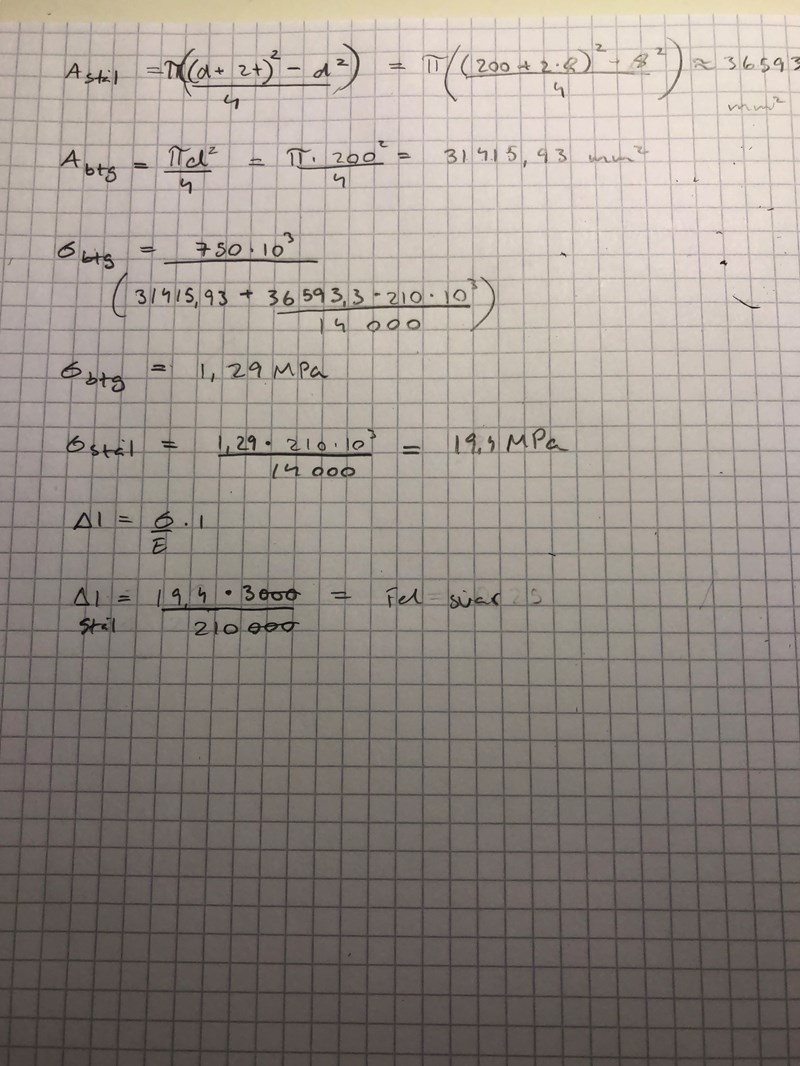 A stål = π((d + 2t)² - d²)/4 = π((200 + 2·8)² - 8²)/4 ≈ 36593 mm²
A btg = πd²/4 = π · 200²/4 = 31415,93 mm²
σ btg = 750·10³/(31415,93 + 36593,3 · 210·10³/14 000)
σ btg = 1,29 MPa
σ stål = 1,29 · 210·10³/14 000 = 19,4 MPa
Δl = σ/E · l
Δl stål = 19,4 · 3000/210 000 = Fel svar